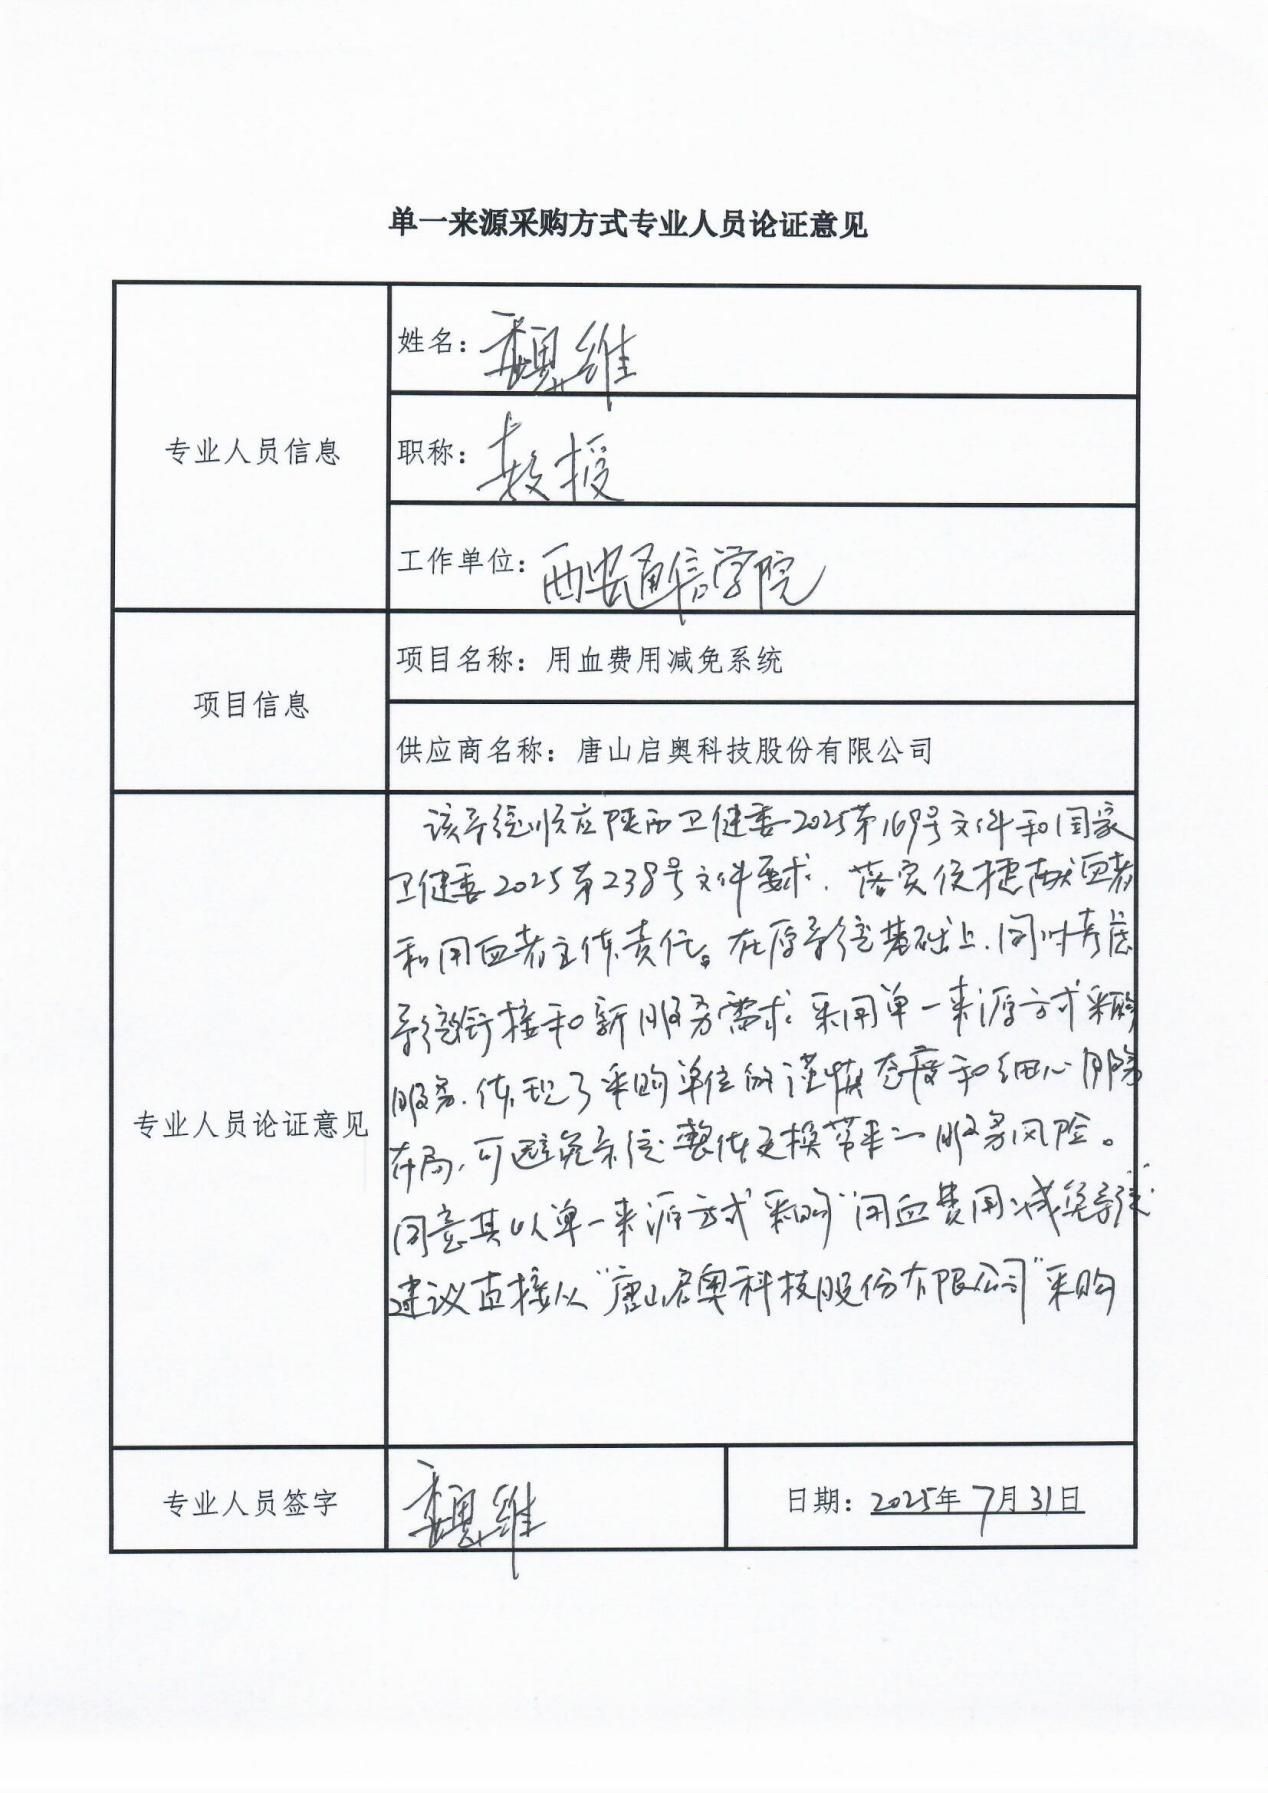 单一来源采购方式专业人员论证意见
专业人员信息
姓名：魏维
职称：教授
工作单位：西安通信学院
项目信息
项目名称：用血费用减免系统
供应商名称：唐山启奥科技股份有限公司
专业人员论证意见
该系统顺应陕西卫健委2025第169号文件和国家
卫健委2025第238号文件要求．落实便捷献血者
和用血者主体责任。在原系统基础上．同时考虑
系统衔接和新服务需求．采用单一来源方式采购
服务．体现了采购单位的谨慎态度和细心服务
布局，可避免系统整体更换带来的服务风险。
同意其以单一来源方式采购“用血费用减免系统”
建议直接从“唐山启奥科技股份有限公司”采购
专业人员签字
魏维
日期：2025年7月31日